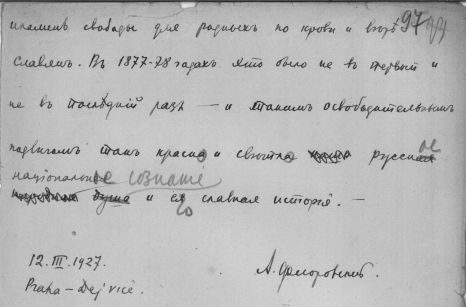 пламень свободы для родныхъ по крови и вѣрѣ 97
славянъ. Въ 1877-78 годахъ это было не въ первый и
не въ послѣдній разъ — и такимъ освободительнымъ
подвигамъ такъ красно и свѣтло русское
національное сознаніе
душа и ея славная исторія. —
12. III. 1927.
Praha – Dejvice.
А. Флоровскій.